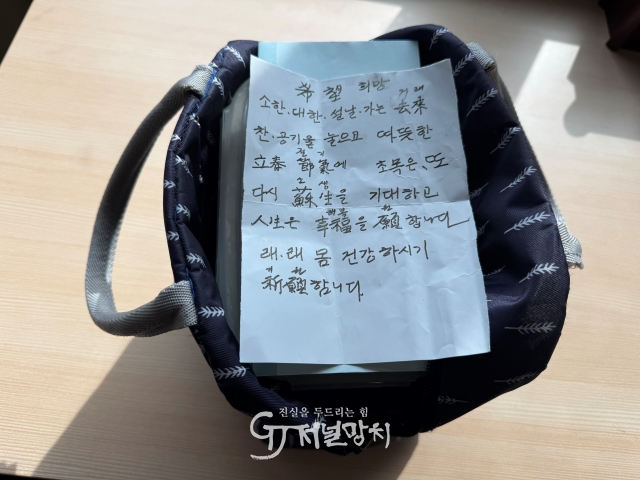 希望 희망
거래
소한.대한.설날.가는 去來
찬.공기를 놓으고 따뜻한
절기
立春 節氣에 초목은,또
소생
다시 蘇生을 기대하고
행복 원
人生은 幸福을 願합니다
래.래 몸 건강하시기
기원
祈願합니다.
진실을 두드리는 힘
GJ저널망치